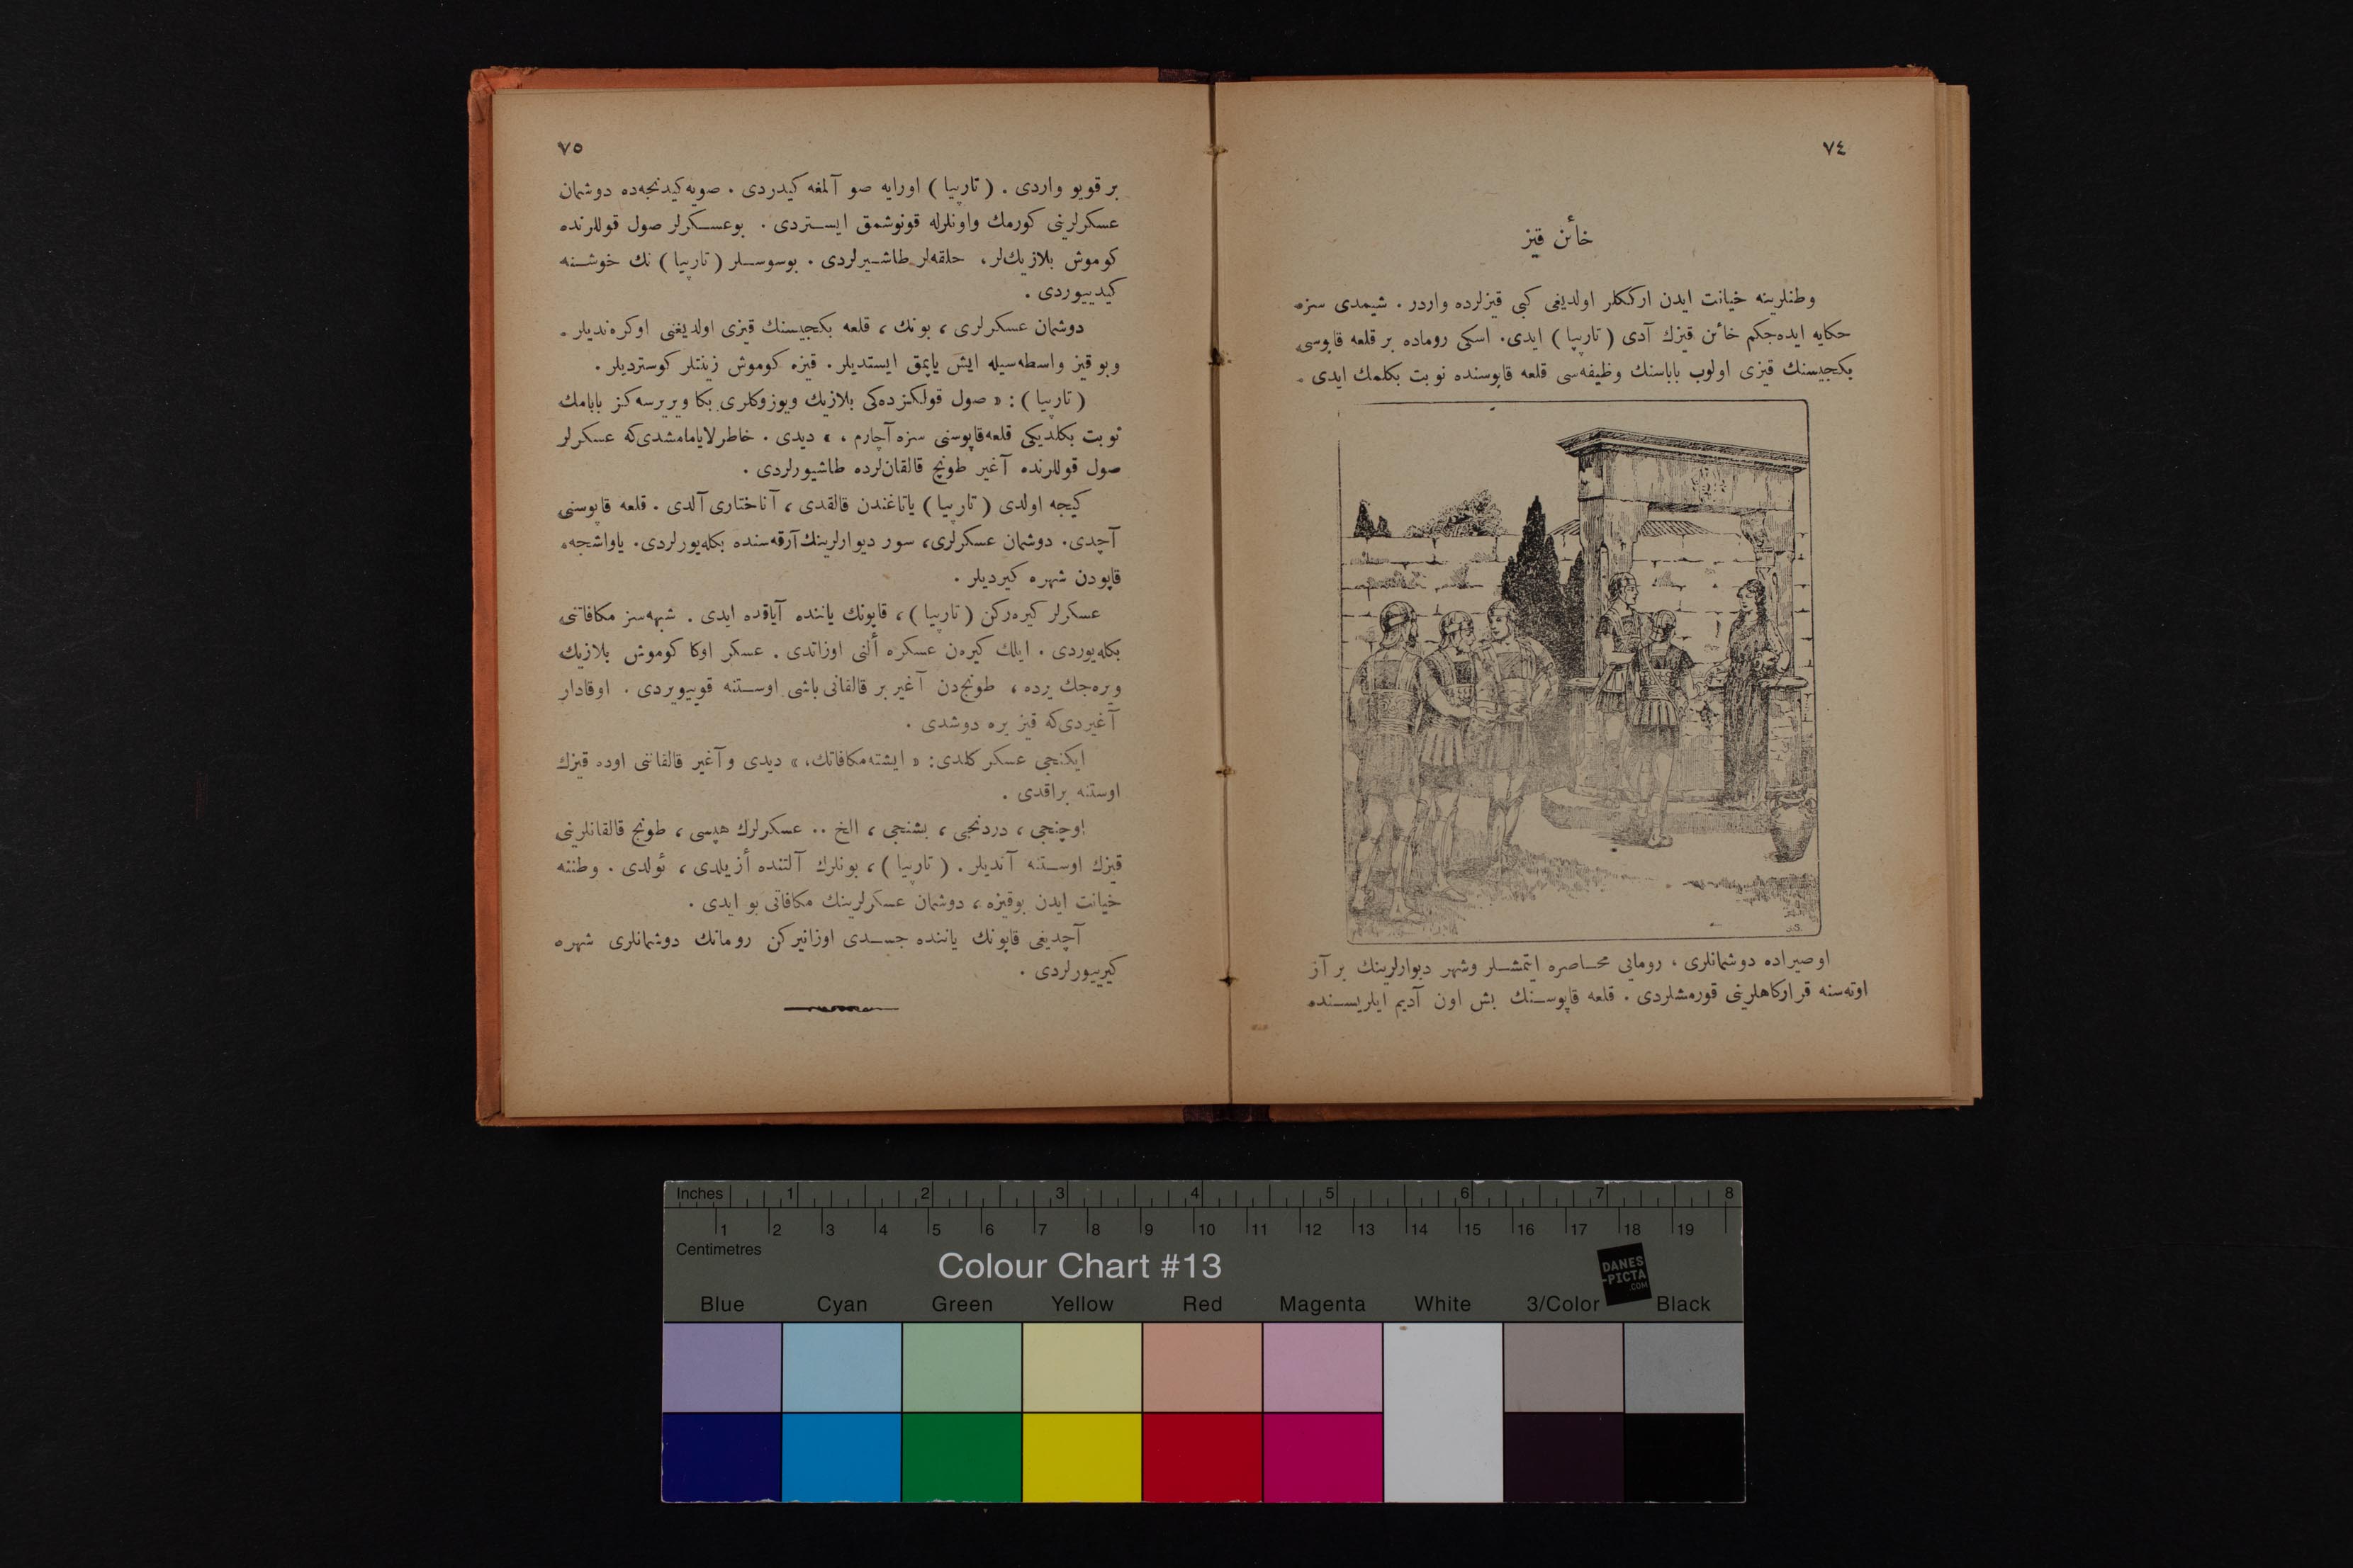 ٧٤
خائن قيز
وطنلرينه خيانت ايدن ارككلر اولديغى كبى قيزلرده واردر . شيمدى سزه
حكايه ايده‌جكم خائن قيزك آدى ( تارپيا ) ايدى. اسكى روماده بر قلعه قاپوسى
بكجيسنك قيزى اولوب باباسنك وظيفه‌سى قلعه قاپوسنده نوبت بكلمك ايدى .
اوصيراده دوشمانلرى ، رومايى محاصره ايتمشلر وشهر ديوارلرينك بر آز
اوته‌سنه قراركاهلرينى قورمشلردى . قلعه قاپوسنك بش اون آديم ايلريسنده
٧٥
بر قويو واردى . ( تارپيا ) اورايه صو آلمغه كيدردى . صويه كيدنجه‌ده دوشمان
عسكرلرينى كورمك واونلرله قونوشمق ايستردى . بوعسكرلر صول قوللرنده
كوموش بلازيك‌لر، حلقه‌لر طاشيرلردى . بوسوسلر ( تارپيا ) نك خوشنه
كيدييوردى .
دوشمان عسكرلرى ، بونك ، قلعه بكجيسنك قيزى اولديغنى اوكره‌نديلر .
وبو قيز واسطه‌سيله ايش ياپمق ايستديلر . قيزه كوموش زينتلر كوسترديلر .
( تارپيا ) : « صول قولكزده‌كى بلازيك ويوزوكلرى بكا ويريرسه‌كز بابامك
نوبت بكلديكى قلعه‌قاپوسنى سزه آچارم ، » ديدى . خاطرلايامامشدى‌كه عسكرلر
صول قوللرنده آغير طونچ قالقان‌لرده طاشيورلردى .
كيجه اولدى ( تارپيا ) ياتاغندن قالقدى ، آناختارى آلدى . قلعه قاپوسنى
آچدى. دوشمان عسكرلرى، سور ديوارلرينك آرقه‌سنده بكله‌يورلردى. ياواشجه
قاپودن شهره كيرديلر .
عسكرلر كيره‌ركن ( تارپيا ) ، قاپونك ياننده آياقده ايدى . شبهه‌سز مكافاتنى
بكله‌يوردى . ايلك كيره‌ن عسكره ألنى اوزاتدى . عسكر اوكا كوموش بلازيك
ويره‌جك يرده ، طونج‌دن آغير بر قالقانى باشى اوستنه قوييويردى . اوقادار
آغيردى‌كه قيز يره دوشدى .
ايكنجى عسكر كلدى: « ايشته مكافاتك، » ديدى وآغير قالقاننى اوده قيزك
اوستنه براقدى .
اوچنجى ، دردنجى ، بشنجى ، الخ .. عسكرلرك هپسى ، طونج قالقانلرينى
قيزك اوستنه آتديلر . ( تارپيا ) ، بونلرك آلتنده أزيلدى ، ئولدى . وطننه
خيانت ايدن بوقيزه ، دوشمان عسكرلرينك مكافاتى بو ايدى .
آچديغى قاپونك ياننده جسدى اوزانيركن رومانك دوشمانلرى شهره
كيرييورلردى .
Inches 1 2 3 4 5 6 7 8
1 2 3 4 5 6 7 8 9 10 11 12 13 14 15 16 17 18 19
Centimetres
Colour Chart #13
DANES
-PICTA
.COM
Blue Cyan Green Yellow Red Magenta White 3/Color Black